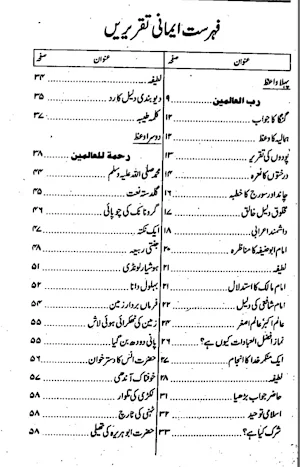 فہرست ایمانی تقریریں
عنوان صفحہ
پہلا وعظ
رب العالمین ۹
گنگا کا جواب ۱۲
ہمالیہ کا وعظ ۱۲
پودوں کی تقریر ۱۳
درختوں کا نعرہ ۱۴
چاند اور سورج کا خطبہ ۱۶
مخلوق دلیل خالق ۱۷
دانشمند اعرابی ۱۸
امام ابو حنیفہ کا مناظرہ ۲۰
لطیفہ ۲۱
امام مالک کا استدلال ۲۱
امام شافعی کی دلیل ۲۲
عالم اکبر عالم اصغر ۲۴
نماز افضل العبادات کیوں ہے؟ ۲۶
ایک منکر خدا کا انجام ۲۷
لطیفہ ۲۸
حاضر جواب بڑھیا ۳۱
اسلامی توحید ۳۲
شرک کیا ہے؟ ۳۳
عنوان صفحہ
لطیفہ ۳۴
دیوبندی دلیل کا رد ۳۵
کلمہ طیبہ ۳۷
دوسرا وعظ
رحمة للعالمین ۳۸
محمد صلی اللہ علیہ وسلم ۴۴
گلدستہ نعت ۴۵
گرو نانک کی چوپائی ۴۶
ایک نکتہ ۴۷
جنتی ربیعہ ۴۸
ہوشیار لونڈی ۵۱
بہلول دانا ۵۲
فرماں بردار زمین ۵۴
زمین کی ٹھکرائی ہوئی لاش ۵۵
پانی دودھ بن گیا ۵۵
حضرت انس کا دسترخوان ۵۶
خوفناک آندھی ۵۷
لکڑی کی تلوار ۵۸
ٹہنی کی ٹارچ ۵۸
حضرت ابوہریرہ کی تھیلی ۵۸